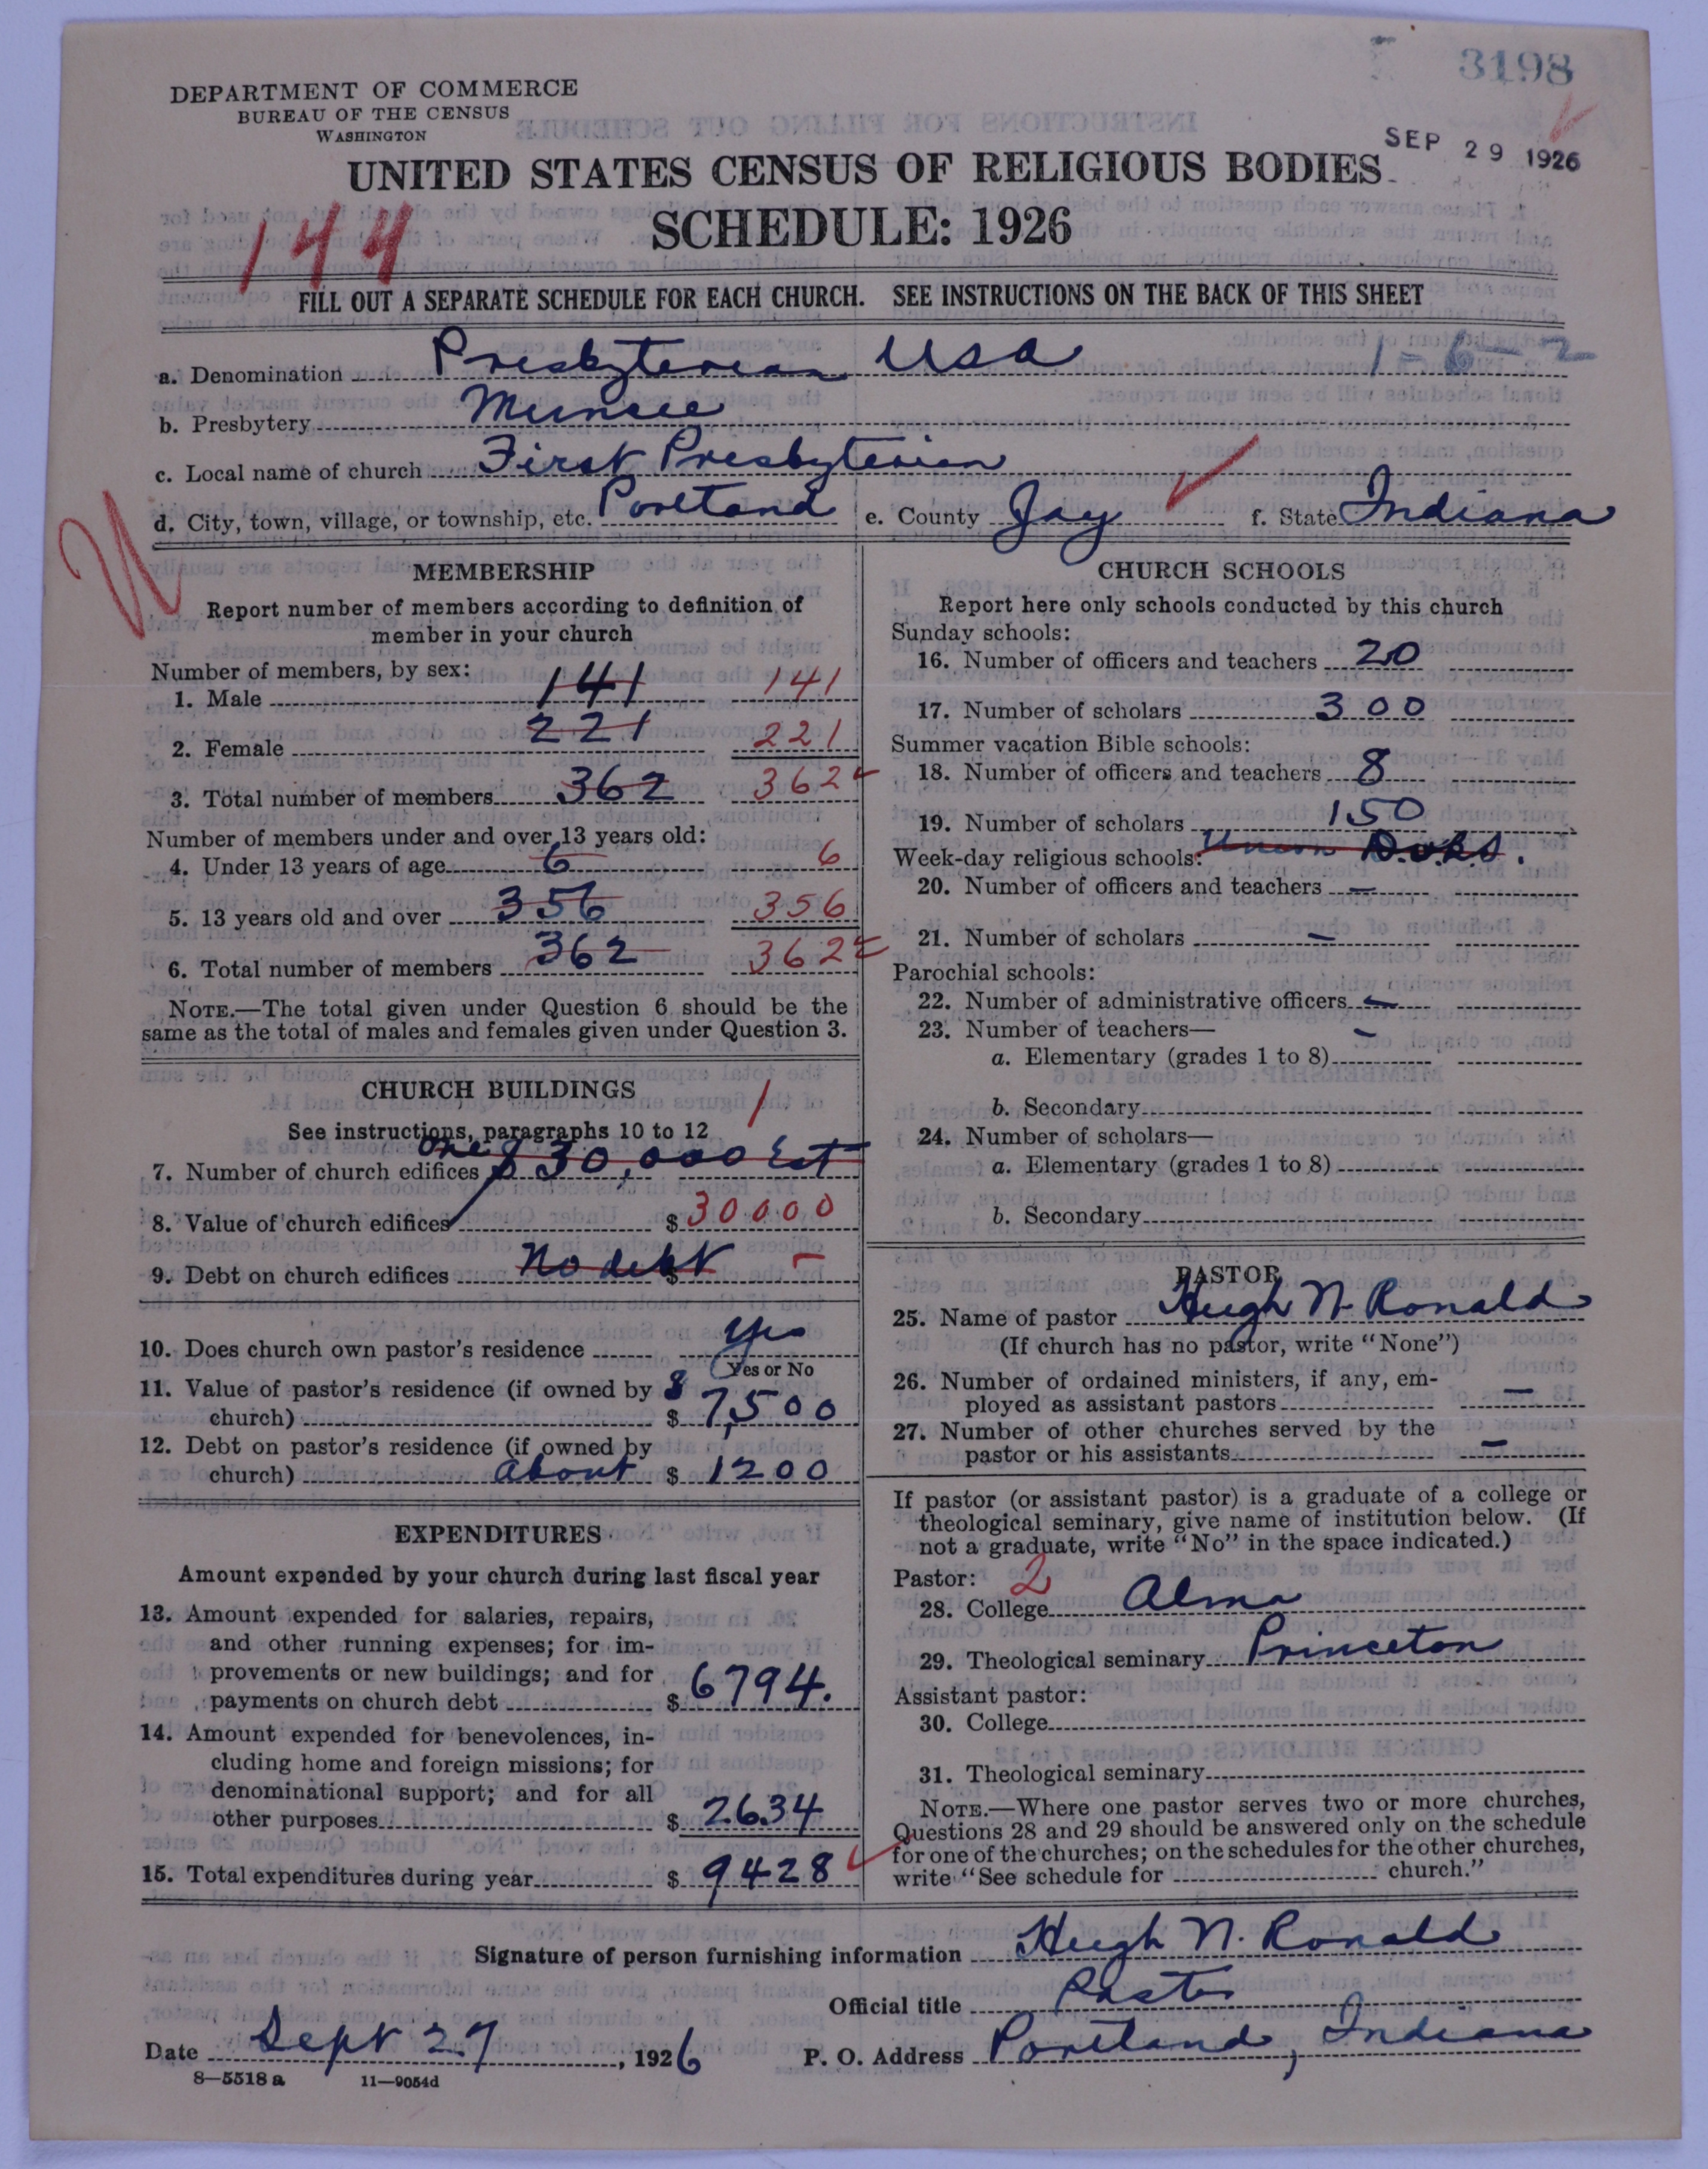 3198
DEPARTMENT OF COMMERCE
BUREAU OF THE CENSUS
WASHINGTON
SEP 29 1926
UNITED STATES CENSUS OF RELIGIOUS BODIES
SCHEDULE: 1926
144
FILL OUT A SEPARATE SCHEDULE FOR EACH CHURCH. SEE INSTRUCTIONS ON THE BACK OF THIS SHEET
a. Denomination Presbyterian USA 1-6-2
b. Presbytery Muncie
c. Local name of church First Presbyterian
d. City, town, village, or township, etc. Portland e. County Jay f. State Indiana
MEMBERSHIP
Report number of members according to definition of
member in your church
Number of members, by sex:
1. Male 141 141
2. Female 221 221
3. Total number of members 362 362
Number of members under and over 13 years old:
4. Under 13 years of age 6 6
5. 13 years old and over 356 356
6. Total number of members 362 362
NOTE.—The total given under Question 6 should be the
same as the total of males and females given under Question 3.
CHURCH BUILDINGS
See instructions, paragraphs 10 to 12
7. Number of church edifices one $30,000 Est 1
8. Value of church edifices $ 30000
9. Debt on church edifices No debt $ –
10. Does church own pastor's residence Yes
Yes or No
11. Value of pastor's residence (if owned by
church) $ $ 7,500
12. Debt on pastor's residence (if owned by
church) about $ 1200
EXPENDITURES
Amount expended by your church during last fiscal year
13. Amount expended for salaries, repairs,
and other running expenses; for im-
provements or new buildings; and for
payments on church debt $ 6794.
14. Amount expended for benevolences, in-
cluding home and foreign missions; for
denominational support; and for all
other purposes $ 2634
15. Total expenditures during year $ 9428
CHURCH SCHOOLS
Report here only schools conducted by this church
Sunday schools:
16. Number of officers and teachers 20
17. Number of scholars 300
Summer vacation Bible schools:
18. Number of officers and teachers 8
19. Number of scholars 150
Week-day religious schools: Union D.V.B.S.
20. Number of officers and teachers –
21. Number of scholars –
Parochial schools:
22. Number of administrative officers –
23. Number of teachers— –
a. Elementary (grades 1 to 8)
b. Secondary
24. Number of scholars—
a. Elementary (grades 1 to 8)
b. Secondary
PASTOR
25. Name of pastor Hugh N. Ronald
(If church has no pastor, write "None")
26. Number of ordained ministers, if any, em-
ployed as assistant pastors –
27. Number of other churches served by the
pastor or his assistants –
If pastor (or assistant pastor) is a graduate of a college or
theological seminary, give name of institution below. (If
not a graduate, write "No" in the space indicated.)
Pastor: 2
28. College Alma
29. Theological seminary Princeton
Assistant pastor:
30. College
31. Theological seminary
NOTE.—Where one pastor serves two or more churches,
Questions 28 and 29 should be answered only on the schedule
for one of the churches; on the schedules for the other churches,
write "See schedule for church."
Signature of person furnishing information Hugh N. Ronald
Official title Pastor
Date Sept 27, 1926 P. O. Address Portland, Indiana
8—5518 a 11—9054d